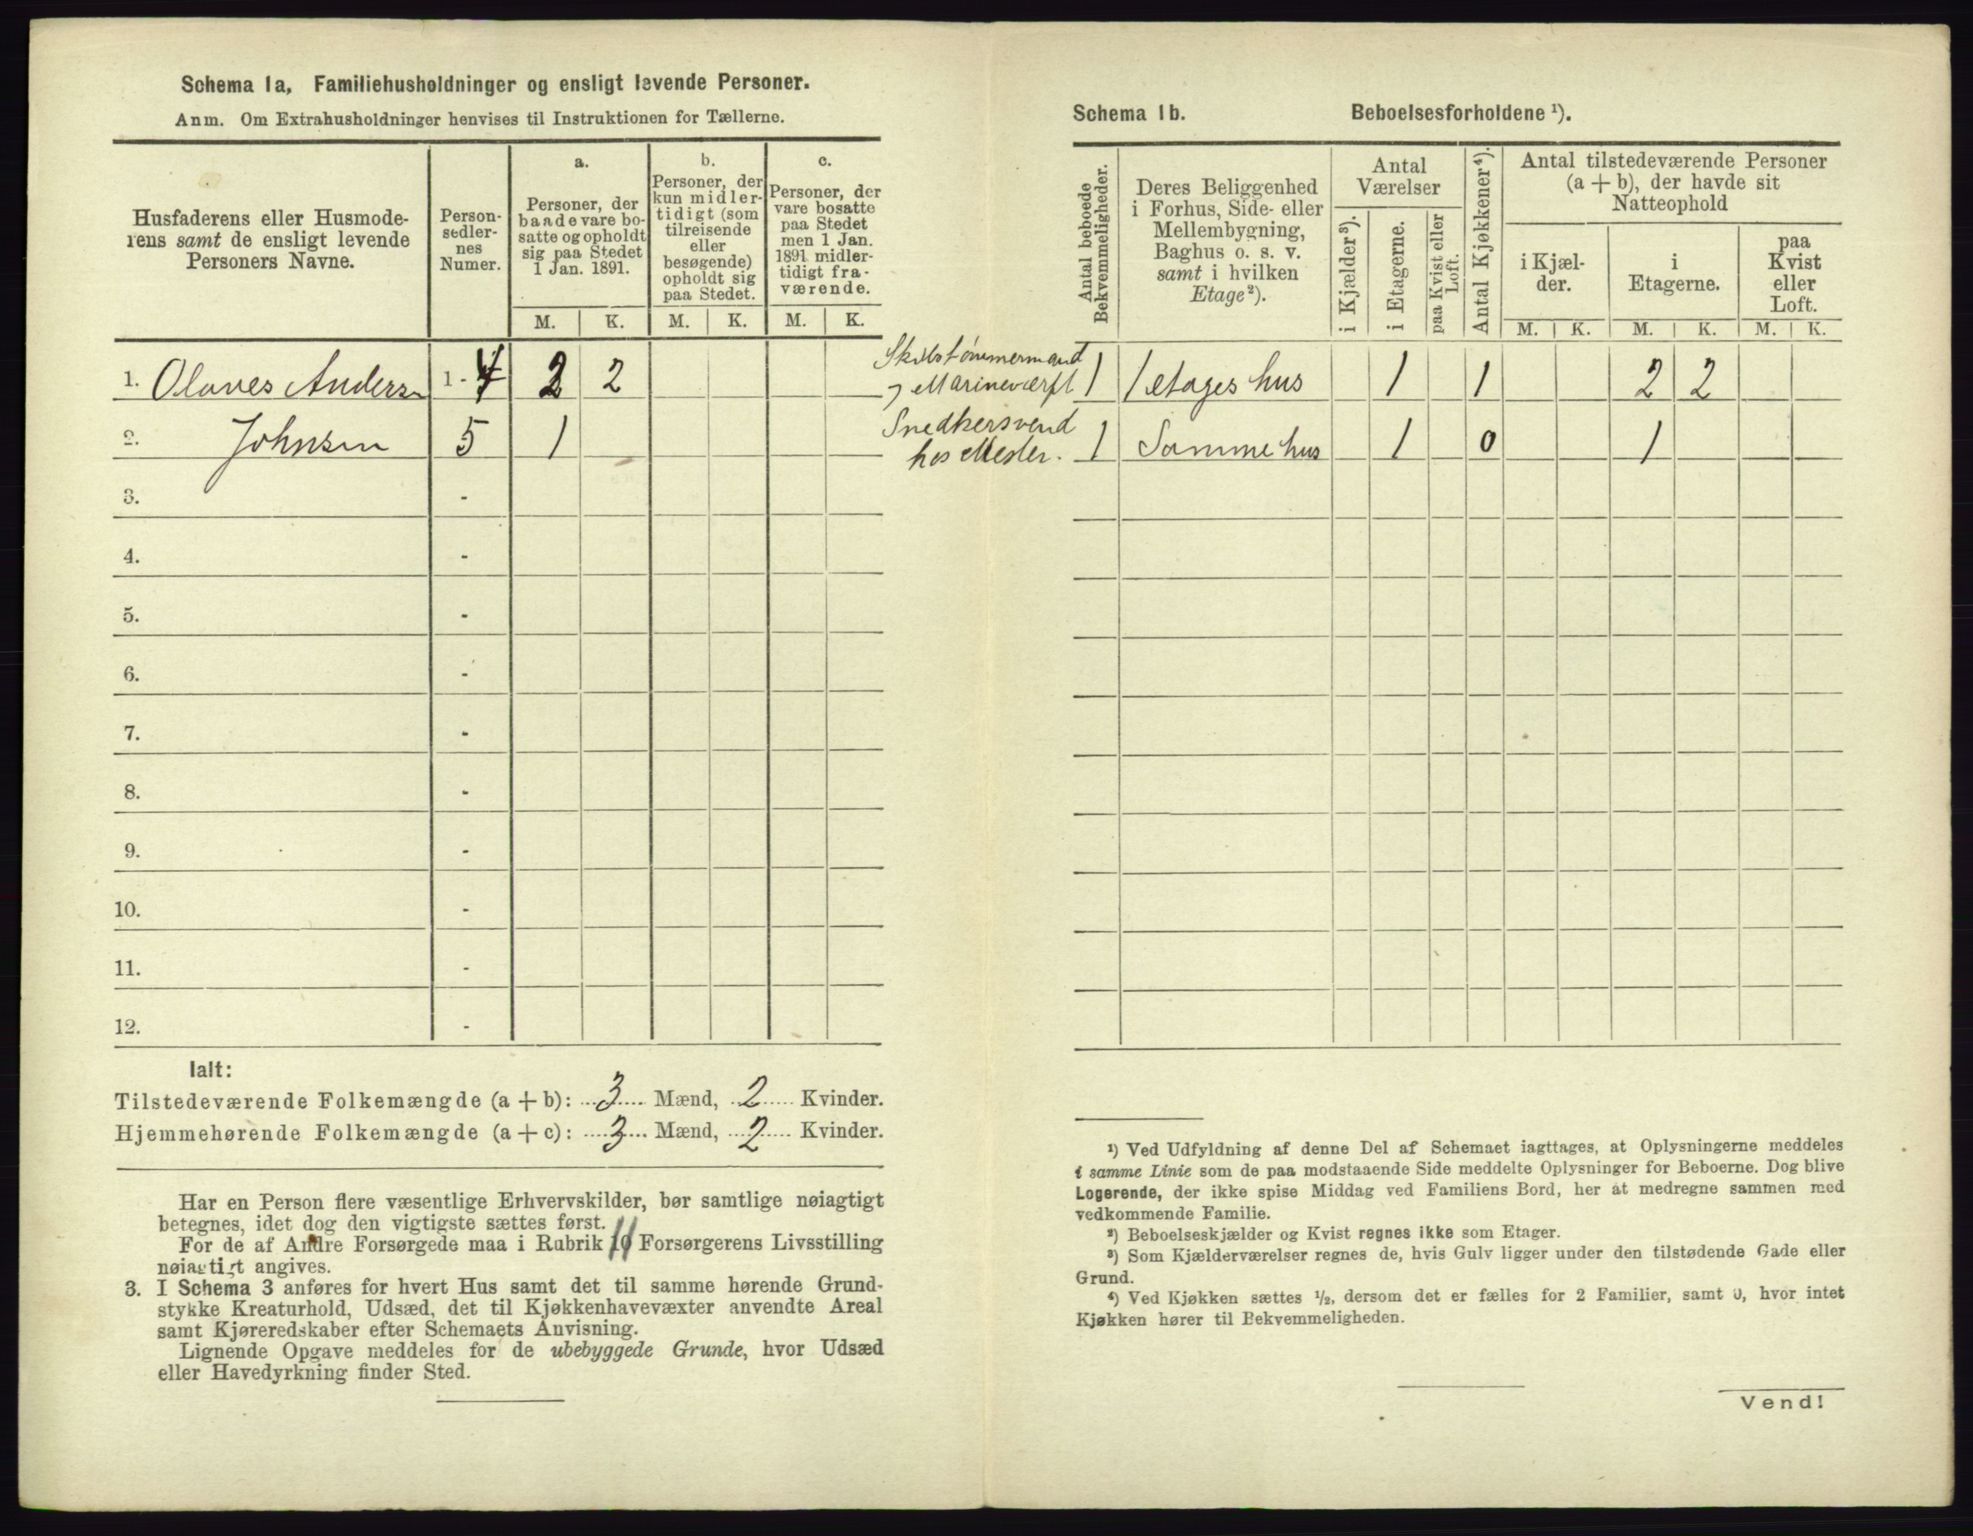 Schema 1a, Familiehusholdninger og ensligt levende Personer.
Anm. Om Extrahusholdninger henvises til Instruktionen for Tællerne.
Husfaderens eller Husmoderens samt de ensligt levende Personers Navne.
Personsedlernes Numer.
a.
Personer, der baade vare bosatte og opholdt sig paa Stedet 1 Jan. 1891.
b.
Personer, der kun midlertidigt (som tilreisende eller besøgende) opholdt sig paa Stedet.
c.
Personer, der vare bosatte paa Stedet men 1 Jan. 1891 midlertidigt fraværende.
M. K. M. K. M. K.
1. Olaves Anders 1 - 4 2 2
2. Johnsen 5 1
3. -
4. -
5. -
6. -
7. -
8. -
9. -
10. -
11. -
12. -
Ialt:
Tilstedeværende Folkemængde (a + b): 3 Mænd, 2 Kvinder.
Hjemmehørende Folkemængde (a + c): 3 Mænd, 2 Kvinder.
Har en Person flere væsentlige Erhvervskilder, bør samtlige nøiagtigt
betegnes, idet dog den vigtigste sættes først.
For de af Andre Forsørgede maa i Rubrik 11 Forsørgerens Livsstilling
nøiagtigt angives.
3. I Schema 3 anføres for hvert Hus samt det til samme hørende Grund-
stykke Kreaturhold, Udsæd, det til Kjøkkenhavevæxter anvendte Areal
samt Kjøreredskaber efter Schemaets Anvisning.
Lignende Opgave meddeles for de ubebyggede Grunde, hvor Udsæd
eller Havedyrkning finder Sted.
Schema 1b. Beboelsesforholdene ¹).
Antal beboede Bekvemmeligheder.
Deres Beliggenhed i Forhus, Side- eller Mellembygning, Baghus o. s. v. samt i hvilken Etage ²).
Antal Værelser
i Kjælder ³).
i Etagerne.
paa Kvist eller Loft.
Antal Kjøkkener ⁴).
Antal tilstedeværende Personer (a + b), der havde sit Natteophold
i Kjælder.
i Etagerne.
paa Kvist eller Loft.
M. K. M. K. M. K.
Skibstømmermand
Marineværft 1 1 etages hus 1 1 2 2
Snedkersvend
hos Mester. 1 Samme hus 1 0 1
¹) Ved Udfyldning af denne Del af Schemaet iagttages, at Oplysningerne meddeles
i samme Linie som de paa modstaaende Side meddelte Oplysninger for Beboerne. Dog blive
Logerende, der ikke spise Middag ved Familiens Bord, her at medregne sammen med
vedkommende Familie.
²) Beboelseskjælder og Kvist regnes ikke som Etager.
³) Som Kjælderværelser regnes de, hvis Gulv ligger under den tilstødende Gade eller
Grund.
⁴) Ved Kjøkken sættes ½, dersom det er fælles for 2 Familier, samt 0, hvor intet
Kjøkken hører til Bekvemmeligheden.
Vend!